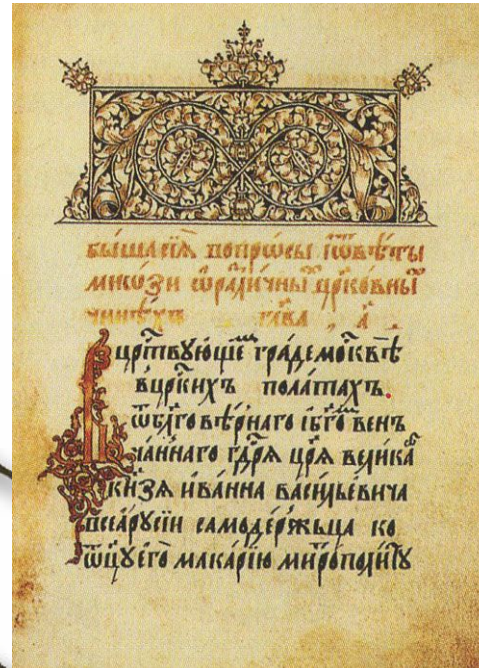 бы́ша сїѧ̀ вопрѡсы ѿвѣты
мнѡзи ѡ разли́чны цр҃ко́вны
чинѣхъ гл҃ва , а҃ .
цр҃ствꙋющїе гра́де москвѣ̀
в цр҃скихъ полатахъ.
ѿ бл҃говѣ́рнаго ї бг҃овен
ча́ннаго гдⷭ҇рѧ цр҃ѧ велика
кн҃зѧ ива́нна васи́льевича
всеа̀ рꙋсїи самоде́ржьца ко
ѿцꙋ̀ его̀ макарїю митрополи́тꙋ